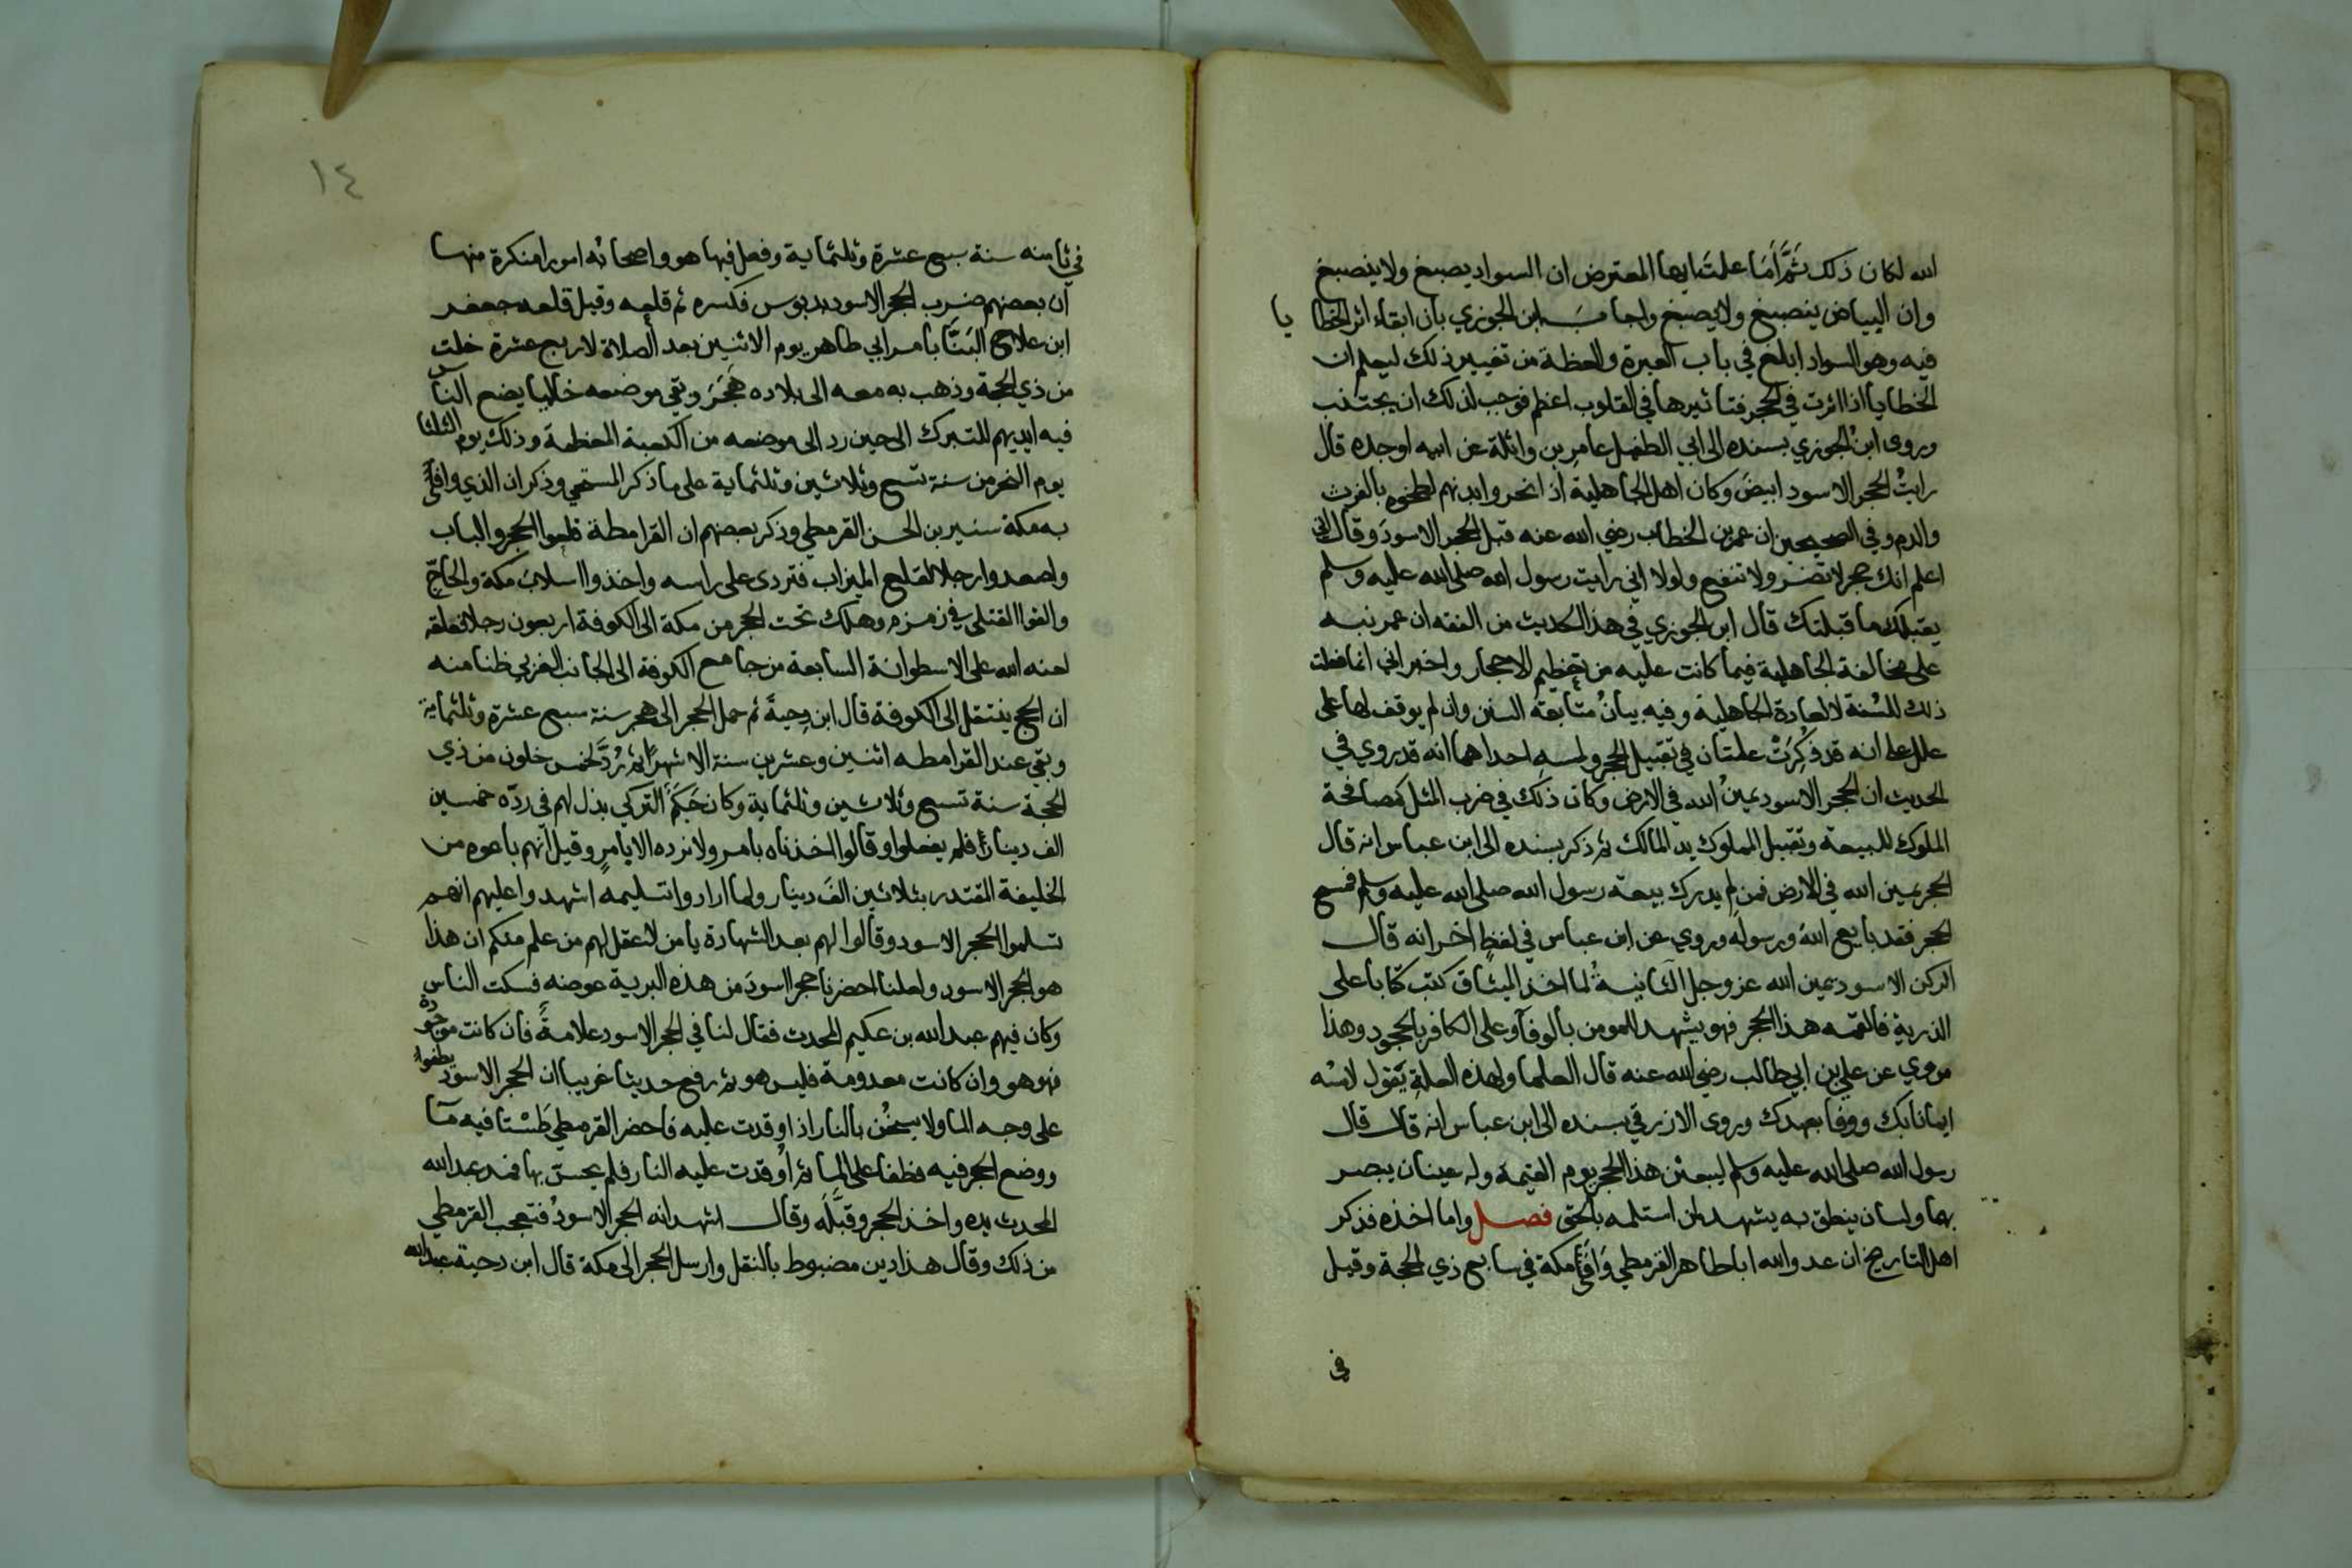 الله لكان ذلك ثَمَّ أمَا علمتَ ايها المعترض ان السواد يصبغ ولا ينصبغ
وان البياض ينصبغ ولا يصبغ واجاب ابن الجوزي بان ابقاء اثر الخطايا
فيه وهو السواد ابلغ في باب العبرة والعظة من تغيير ذلك ليعلم ان
الخطايا اذا اثرت في الحجر فتاثيرها في القلوب اعظم فوجب لذلك ان يجتنب
وروى ابنُ الجوزي بسنده الى ابي الطفيل عامرِ بن واثلة عن ابيه او جده قال
رايتُ الحجر الاسود ابيضَ وكان اهل الجاهلية اذا نحروا بدنهم لطخوه بالفرث
والدم وفي الصحيحين ان عمر بن الخطاب رضي الله عنه قبل الحجر الاسودَ وقال اني
اعلم انك حجر لا تضر ولا تنفع ولولا اني رايت رسول الله صلى الله عليه وسلم
يقبلك ما قبلتك قال ابن الجوزي في هذا الحديث من الفقه ان عمر نبه
على مخالفة الجاهلية فيما كانت عليه من تعظيم الاحجار واخبر اني انما فعلت
ذلك للسُنة لا لعادة الجاهلية وفيه بيانُ متابعة السنن وان لم يوقف لها على
علل على انه قد ذُكِرَتْ علتان في تقبيل الحجر ولمسهِ احداهما انه قد روي في
الحديث ان الحجر الاسود يمينُ الله في الارض وكان ذلك في ضرب المثل كمصافحة
الملوك للبيعة وتقبيل المملوك يدَ المالك ثم ذكر بسنده الى ابن عباس انه قال
الحجر يمين الله في الارض فمن لم يدرك بيعة رسول الله صلى الله عليه وسلم فمسح
الحجر فقد بايع اللهَ ورسولَه وروي عن ابن عباس في لفظٍ اخر انه قال
الركن الاسود يمين الله عز وجل الثانيةُ لما اخذ الميثاق كتب كتابا على
الذرية فالقمه هذا الحجر فهو يشهد للمومن بالوفآ وعلى الكافر بالجحود وهذا
مروي عن علي بن ابي طالب رضي الله عنه قال العلما ولهذه العلةِ يَقول لامسُه
ايمانا بك ووفا بعهدك وروى الازرقي بسنده الى ابن عباس انه قال قال
رسول الله صلى الله عليه وسلم ليبعثن هذا الحجر يوم القيمة وله عينان يبصر
بهما ولسان ينطق به يشهد لمن استلمه بالحق فصل واما اخذه فذكر
اهل التاريخ ان عدو الله ابا طاهر القرمطي وَافَىَ مكة في سابع ذي الحجة وقيل
في
١٤
في ثامنه سنة سبع عشرة وثلثماية وفعل فيها هو واصحابُه امورا منكرة منها
ان بعضهم ضرب الحجر الاسود بدبوس فكسره ثم قلعه وقيل قلعه جعفر
ابن علاج البَنَّا بامر ابي طاهر يوم الاثنين بعد الصلاة لاربع عشرة خلت
من ذي الحجة وذهب به معه الى بلاده هَجَرَ وبقي موضعه خاليا يضع الناس
فيه ايديهم للتبرك الى حين رد الى موضعه من الكعبة المعظمة وذلك يوم الثلثا
يوم النحر من سنة تسع وثلاثين وثلثماية على ما ذكر المسبحي وذكر ان الذي وافَى
به مكة سنبر بن الحسن القرمطي وذكر بعضهم ان القرامطة قلعوا الحجر والباب
واصعدوا رجلا لقلع الميزاب فتردى على راسه واخذوا اسلابَ مكة والحاجّ
والقوا القتلى في زمزم وهلك تحت الحجر من مكة الى الكوفة اربعون رجلا فعلقه
لعنه الله على الاسطوانة السابعة من جامع الكوفة الى الجانب الغربي ظنا منه
ان الحج ينتقل الى الكوفة قال ابن دِحيةَ ثم حمل الحجر الى هجر سنة سبع عشرة وثلثماية
وبقي عند القرامطه اثنين وعشرين سنة الا شهرًا ثم رُدَّ لخمس خلون من ذي
الحجة سنة تسع وثلاثين وثلثماية وكان حَكَمٌ التركي بذل لهم في ردّه خمسين
الف دينارًا فلم يفعلوا وقالوا اخذناه بامر ولا نرده الا بامرٍ وقيل انهم باعوه من
الخليفة المقتدر بثلاثين الفَ دينار ولما ارادوا تسليمه اشهدوا عليهم انهم
تسلموا الحجر الاسود وقالوا لهم بعد الشهادة يا من لا عقل لهم من علم منكم ان هذا
هو الحجر الاسود ولعلنا احضرنا حجرا اسودَ من هذه البرية عوضه فسكت الناس
وكان فيهم عبد الله بن عكيم المحدث فقال لنا في الحجر الاسود علامةٌ فان كانت موجودة
فهو هو وان كانت معدومة فليس هو ثم رفع حديثا غريبا ان الحجر الاسود يطفوا
على وجه الما ولا يسخُن بالنار اذا اوقدت عليه فاحضر القرمطي طَسْتا فيه مآ
ووضع الحجر فيه فطفا على الما ثم اُوقدت عليه النار فلم يحسّ بها فمد عبد الله
المحدث يده واخذ الحجر وقبَّله وقال اشهد انه الحجر الاسودُ فتعجب القرمطي
من ذلك وقال هذا دين مضبوط بالنقل وارسل الحجر الى مكة قال ابن دحية عبد الله